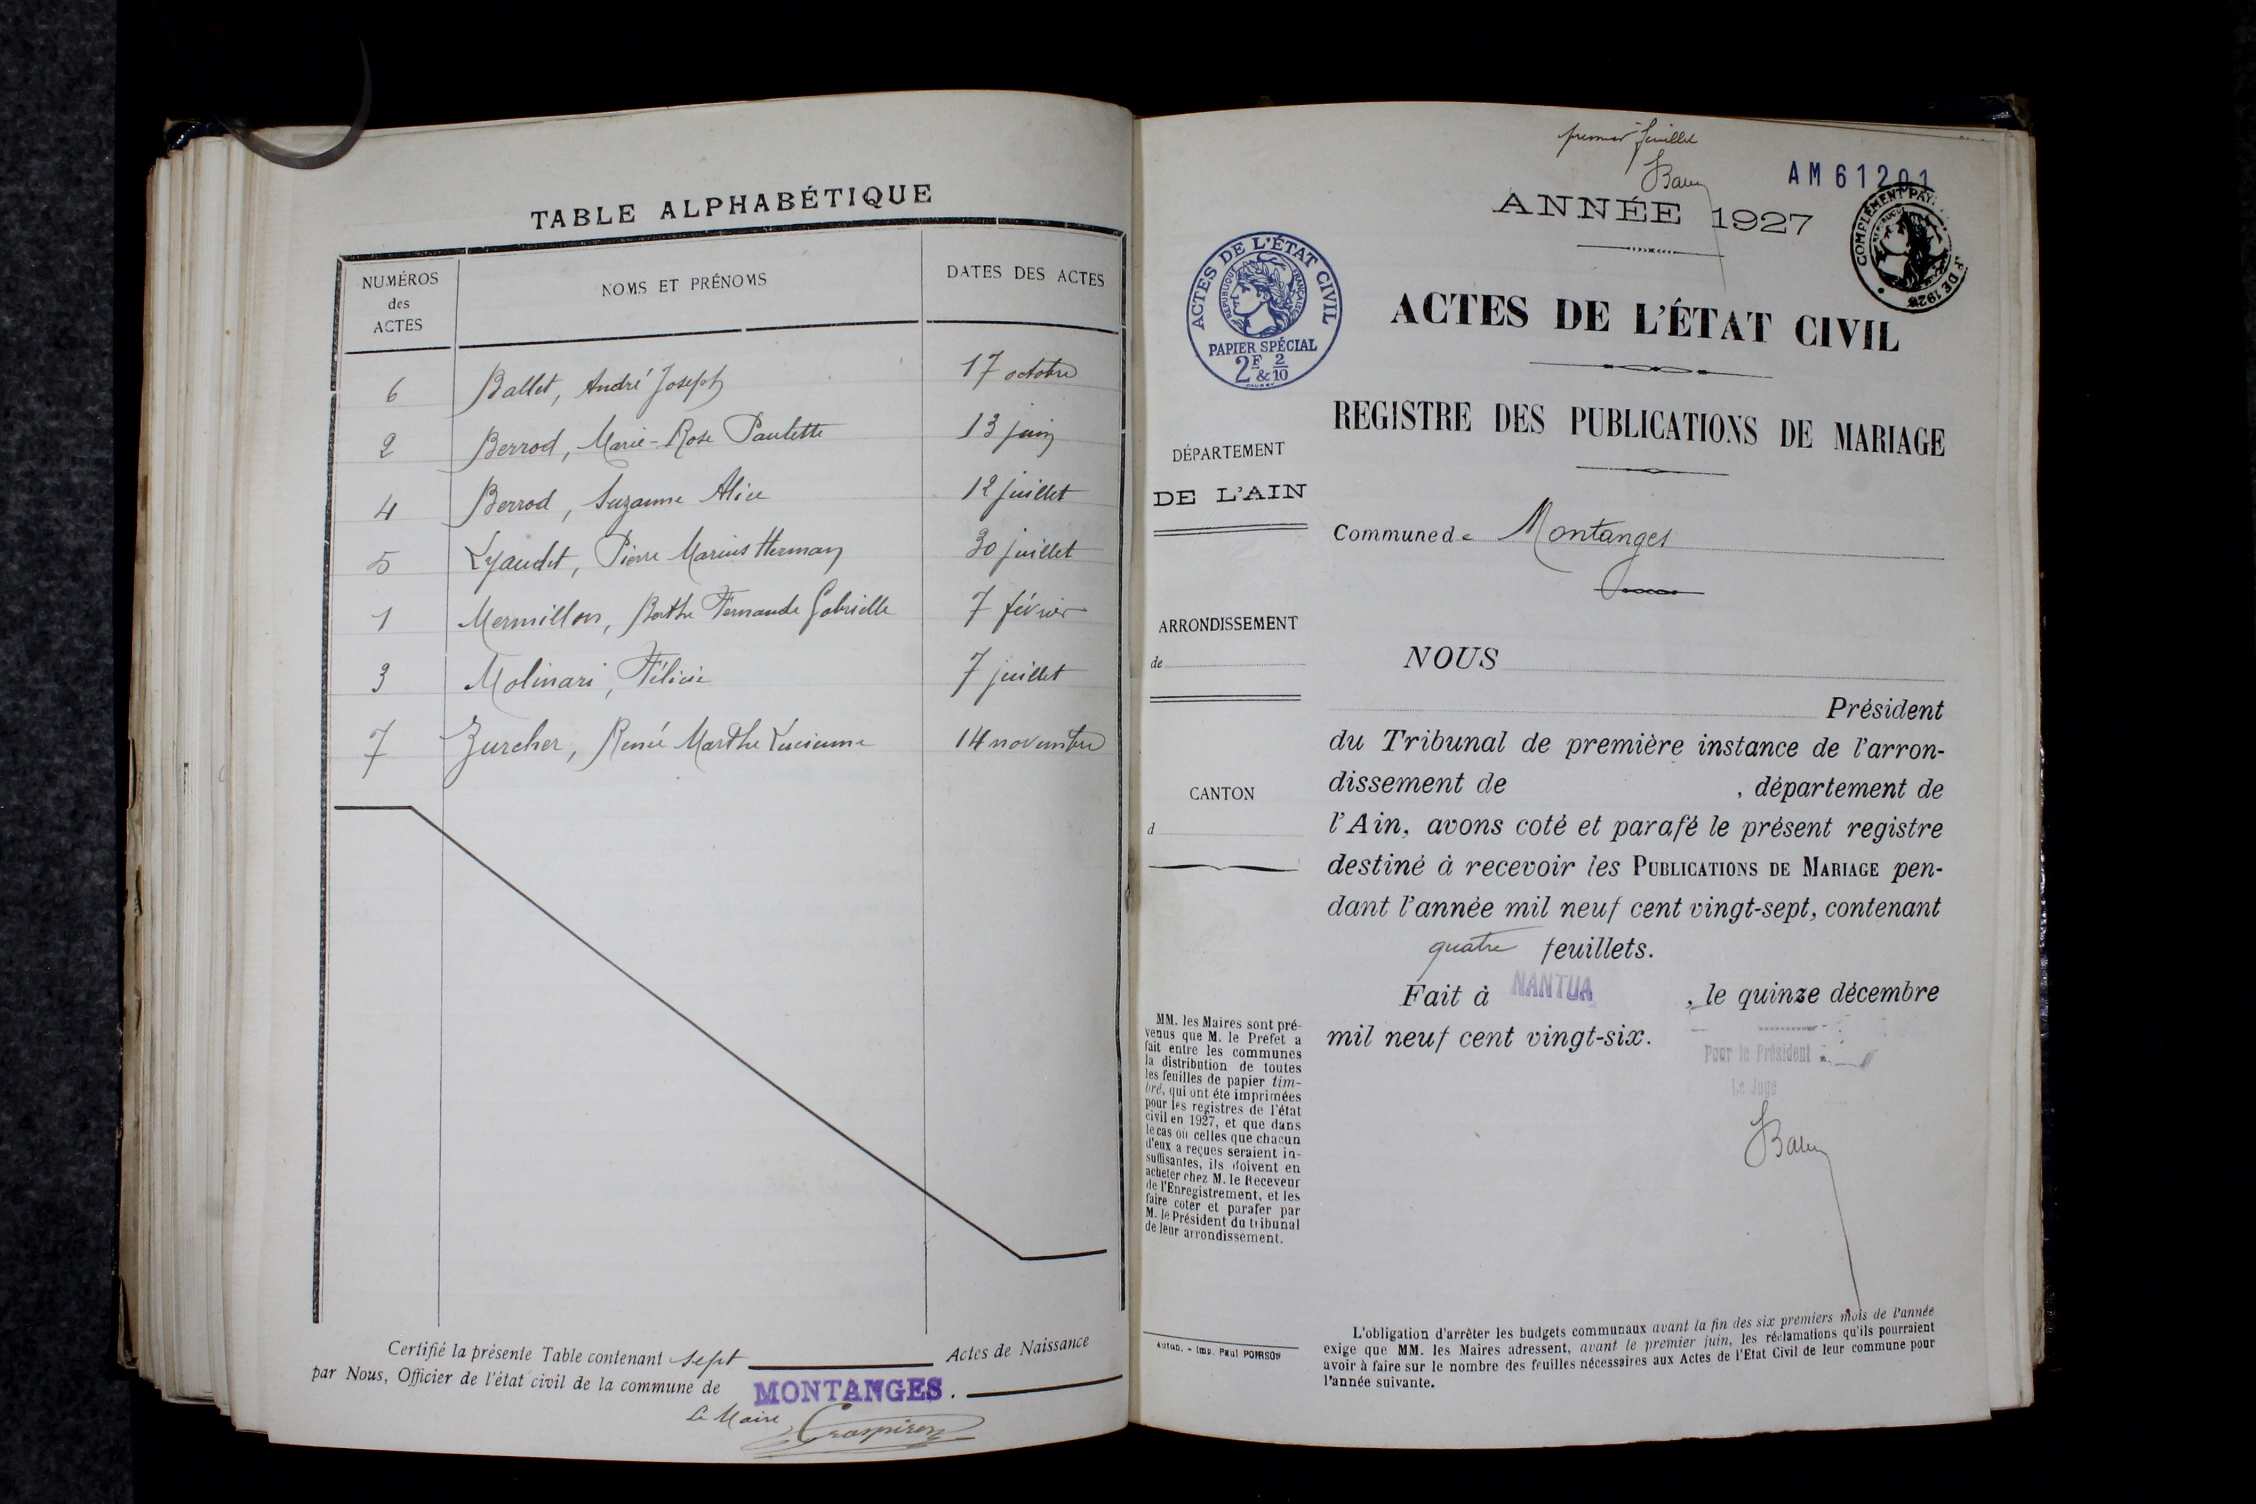 TABLE ALPHABÉTIQUE
NUMÉROS
des
ACTES
NOMS ET PRÉNOMS
DATES DES ACTES
6 Ballet, André Joseph 17 octobre
2 Berrod, Marie-Rose Paulette 13 juin
4 Berrod, Suzanne Alice 12 juillet
5 Lyaudet, Pierre Marius Herman 30 juillet
1 Mermillon, Berthe Fernande Gabrielle 7 février
3 Molinari, Félicie 7 juillet
7 Zurcher, Renée Marthe Lucienne 14 novembre
Certifié la présente Table contenant sept Actes de Naissance
par Nous, Officier de l'état civil de la commune de MONTANGES.
Le Maire
premier feuillet
AM61201
ANNÉE 1927
COMPLÉMENT PAYÉ
DE 1926
ACTES DE L'ÉTAT CIVIL
RÉPUBLIQUE FRANÇAISE
PAPIER SPÉCIAL
2F & 2/10
ACTES DE L'ÉTAT CIVIL
REGISTRE DES PUBLICATIONS DE MARIAGE
DÉPARTEMENT
DE L'AIN
Commune de Montanges
ARRONDISSEMENT
de
CANTON
d
NOUS
Président
du Tribunal de première instance de l'arron-
dissement de , département de
l'Ain, avons coté et parafé le présent registre
destiné à recevoir les PUBLICATIONS DE MARIAGE pen-
dant l'année mil neuf cent vingt-sept, contenant
quatre feuillets.
Fait à NANTUA, le quinze décembre
mil neuf cent vingt-six.
Pour le Président
Le Juge
MM. les Maires sont pré-
venus que M. le Préfet a
fait entre les communes
la distribution de toutes
les feuilles de papier tim-
bré, qui ont été imprimées
pour les registres de l'état
civil en 1927, et que dans
le cas où celles que chacun
d'eux a reçues seraient in-
suffisantes, ils doivent en
acheter chez M. le Receveur
de l'Enregistrement, et les
faire coter et parafer par
M. le Président du tribunal
de leur arrondissement.
Autun. - Imp. Paul POIRSON
L'obligation d'arrêter les budgets communaux avant la fin des six premiers mois de l'année
exige que MM. les Maires adressent, avant le premier juin, les réclamations qu'ils pourraient
avoir à faire sur le nombre des feuilles nécessaires aux Actes de l'Etat Civil de leur commune pour
l'année suivante.